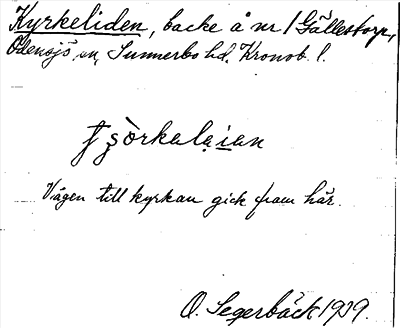 Kyrkeliden, backe å nr 1 Gällestorp,
Odensjö sn, Sunnerbo hd. Kronob. l.
Vägen till kyrkan gick fram här.
O. Segerbäck 1939.